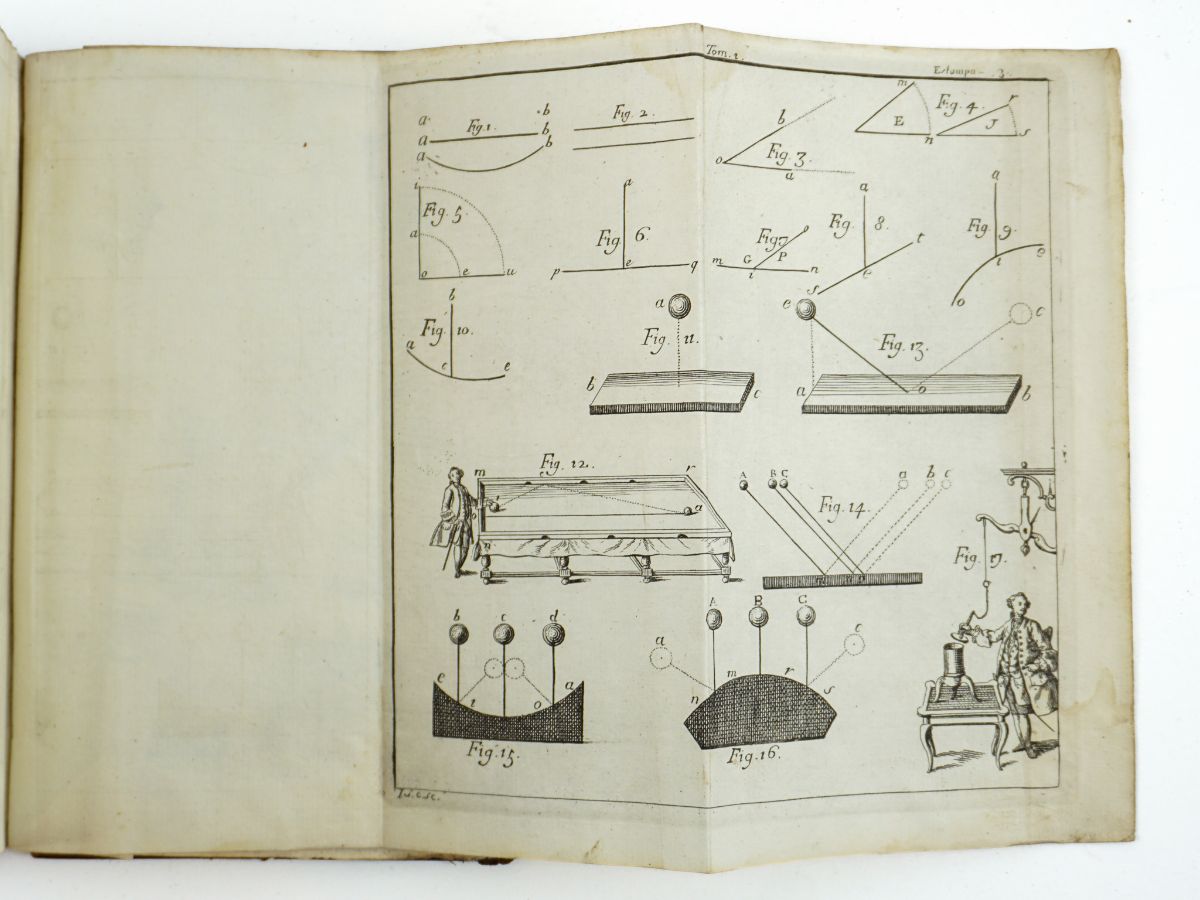 Tom. 1.
Estampa - 3.
a b
a Fig 1. b
a b
Fig. 2.
o b Fig. 3. a
m E n Fig. 4. r J s
i Fig. 5. a o e u
a Fig 6. p e q
m G Fig 7 o P i n
a Fig. 8. t e s
a Fig. 9. i e o
b Fig. 10. a c e
a Fig. 11. b c
e Fig. 13. c a o b
m Fig. 12. r e o a n
A B C Fig. 14. a b c
Fig. 17.
b c d
e i o a
Fig. 15.
A B C
a c
n m r s
Fig. 16.